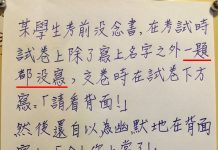 某學生考前没念書,在考試時
試卷上除了寫上名字之外一題
都没寫,交卷時在試卷下方
寫:「請看背面!」
然後還自以為幽默地在背面